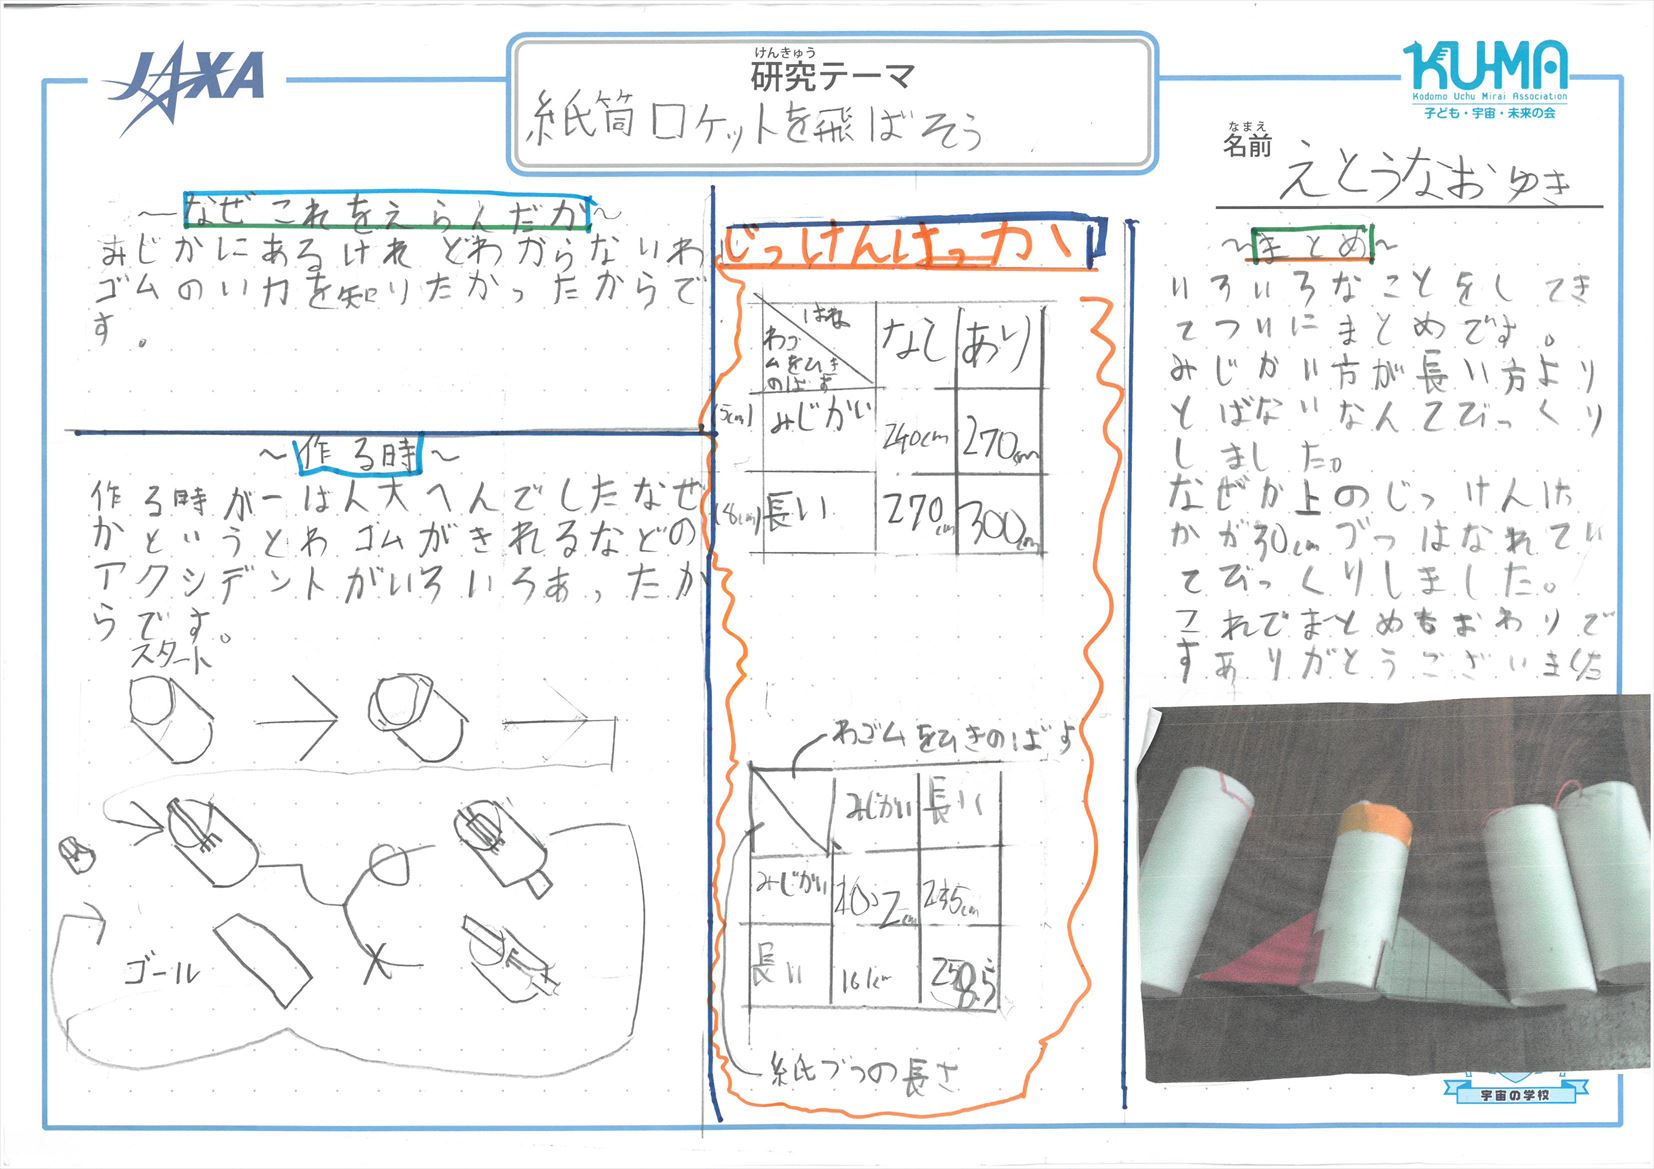 JAXA
けんきゅう
研究テーマ
紙筒ロケットを飛ばそう
KU-MA
Kodomo Uchu Mirai Association
子ども・宇宙・未来の会
なまえ
名前
えとうなおゆき
~なぜこれをえらんだか~
みじかにあるけれどわからないわ
ゴムのい力を知りたかったからで
す。
~作る時~
作る時が一は人大へんでしたなぜ
かというとわゴムがきれるなどの
アクシデントがいろいろあったか
らです。
スタート
ゴール
じっけんけっか
はね
わゴ
ムをひき
のばす
なし
あり
(5cm)
みじかい
240cm
270cm
(8cm)
長い
270cm
300cm
わゴムをひきのばす
みじかい
長い
みじかい
235cm
長い
161cm
258.5
紙づつの長さ
~まとめ~
いろいろなことをしてき
てついにまとめです。
みじかい方が長い方より
とばないなんてびっくり
しました。
なぜか上のじっけんけっ
かが30cmづつはなれてい
てびっくりしました。
これでまとめもおわりで
すありがとうございました
宇宙の学校